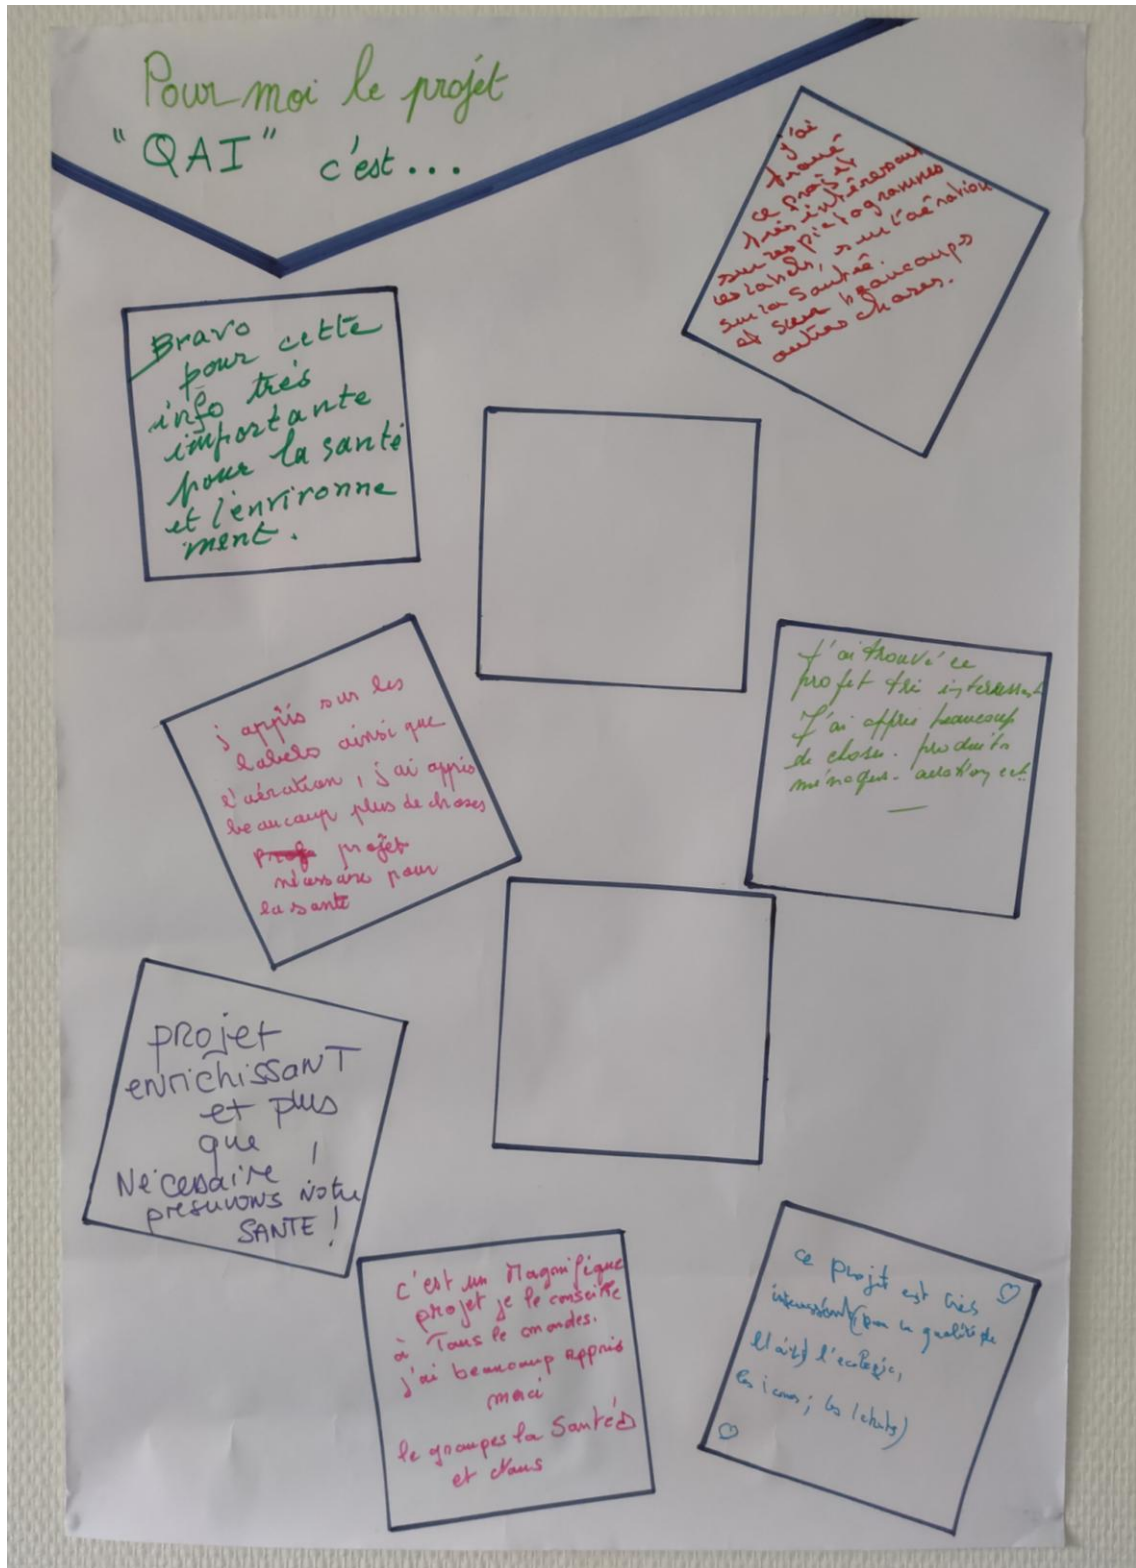 Pour moi le projet
"QAI" c'est...
j'ai
trouvé
ce projet
très intéressant
sur les pictogrammes
les labels, sur l'aération
sur la santé.
et sur beaucoups
autres choses.
Bravo
pour cette
info très
importante
pour la santé
et l'environne
ment.
j'appris sur les
labels ainsi que
l'aération, j'ai appris
beaucoup plus de choses
projet
nécessaire pour
la santé
J'ai trouvé ce
projet tri interessant
J'ai appris beaucoup
de choses. produits
ménagers. aeration ect.
projet
enrichissant
et plus
que
Nécessaire !
preservons notre
SANTE !
c'est un Magnifique
projet je le conseille
à Tous le mondes.
j'ai beaucoup appris
merci
le groupes la Santé
et Nous
ce projet est très
interessant (par la qualité de
l'air) l'ecologie,
les icones; les